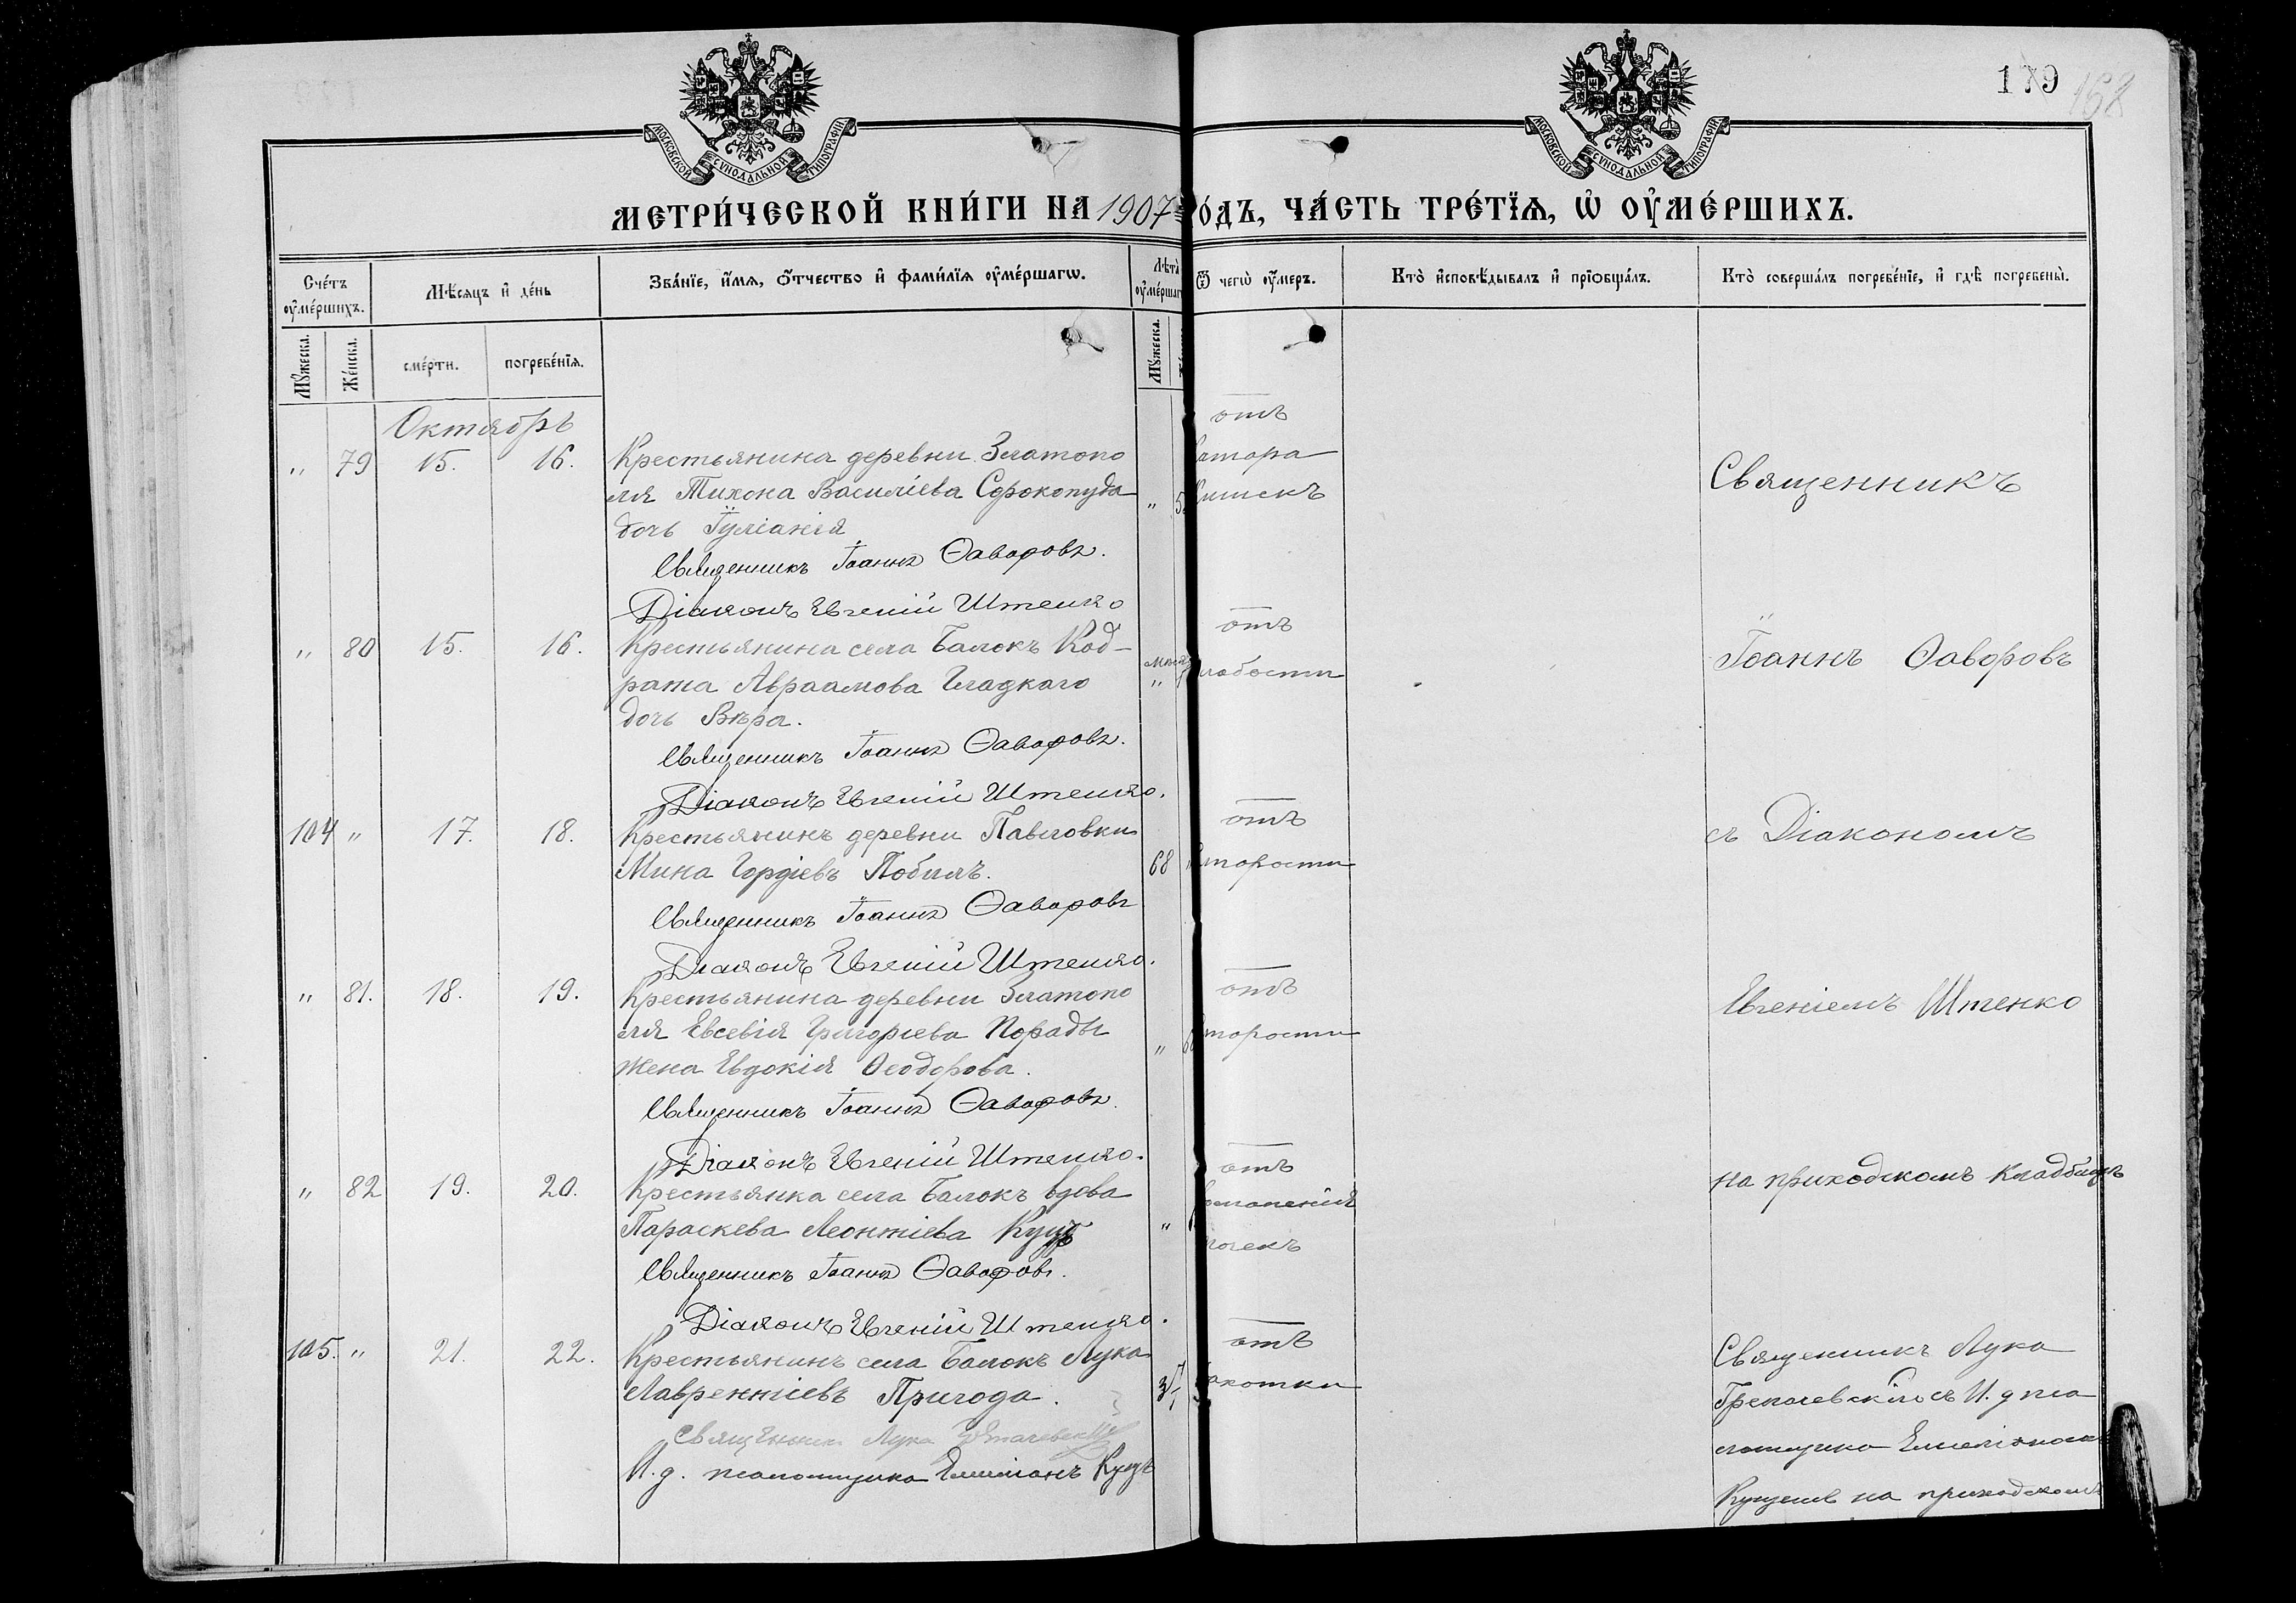 МОСКОВСКОЙ СУНОДАЛЬНОЙ ТИПОГРАФІИ
МОСКОВСКОЙ СУНОДАЛЬНОЙ ТИПОГРАФІИ
179
МЕТРИ́ЧЕСКОЙ КНИ́ГИ НА 1907
О́ДЪ, ЧА́СТЬ ТРЕ́ТЇѦ, Ѡ҆ ОУ҆МЕ́РШИХЪ.
Сче́тъ оу҆ме́ршихъ.
Мѣ́сяцъ и҆ де́нь
Зва́нїе, и҆́мѧ, ѻ҆́тчество и҆ фами́лїѧ оу҆ме́ршагѡ.
Лѣта̀
Ѿ чегѡ̀ оу҆́меръ.
Кто̀ и҆сповѣ́дывалъ и҆ прїѡбща́лъ.
Кто̀ соверша́лъ погребе́нїе, и҆ гдѣ̀ погребены̀.
Мꙋ́жеска.
Же́нска.
сме́рти.
погребе́нїѧ.
Мꙋ́жеска.
Октябрь
" 79 15. 16.
Крестьянина деревни Златопо
ля Тихона Василіева Сорокопуда
дочь Іуліанія
Священникъ Іоаннъ Ѳаворовъ.
Діаконъ Евгеній Штенко
отъ
Священникъ
" 80 15. 16.
Крестьянина села Балокъ Код-
рата Авраамова Гладкаго
дочь Вѣра.
Священникъ Іоаннъ Ѳаворовъ.
Діаконъ Евгеній Штенко.
отъ
лабости
Іоаннъ Ѳаворовъ
104 " 17. 18.
Крестьянинъ деревни Павловки
Мина Гордіевъ Побилъ.
Священникъ Іоаннъ Ѳаворовъ
Діаконъ Евгеній Штенко.
68
отъ
тарости
съ Діакономъ
" 81. 18. 19.
Крестьянина деревни Златопо
ля Евсевія Григоріева Порады
жена Евдокія Ѳеодорова.
Священникъ Іоаннъ Ѳаворовъ.
Діаконъ Евгеній Штенко.
отъ
тарости
Евгеніемъ Штенко
" 82 19. 20.
Крестьянка села Балокъ вдова
Параскева Леонтіева Куцъ
Священникъ Іоаннъ Ѳаворовъ.
Діаконъ Евгеній Штенко.
отъ
почекъ
на приходскомъ кладбищѣ
105. " 21. 22.
Крестьянинъ села Балокъ Лука
Лаврентіевъ Пригода.
Священникъ Лука
И.д. псаломщика Емиліанъ Куцъ
отъ
чахотки
Священникъ Лука
съ И. д пса
ломщика Емиліаномъ
на приходскомъ